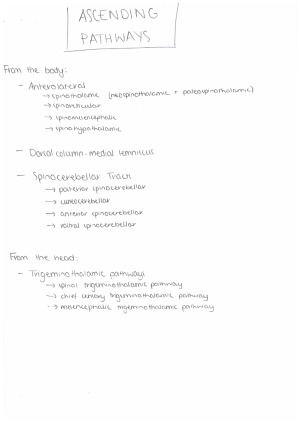 ASCENDING
PATHWAYS
From the body:
- Anterolateral
→ spinothalamic (neospinothalamic + paleospinothalamic)
→ spinoreticular
→ spinomesencephalic
→ spinohypothalamic
- Dorsal column-medial lemniscus
- Spinocerebellar Tract
→ posterior spinocerebellar
→ cuneocerebellar
→ anterior spinocerebellar
→ rostral spinocerebellar
From the head:
- Trigeminothalamic pathways
→ spinal trigeminothalamic pathway
→ chief sensory trigeminothalamic pathway
→ mesencephalic trigeminothalamic pathway